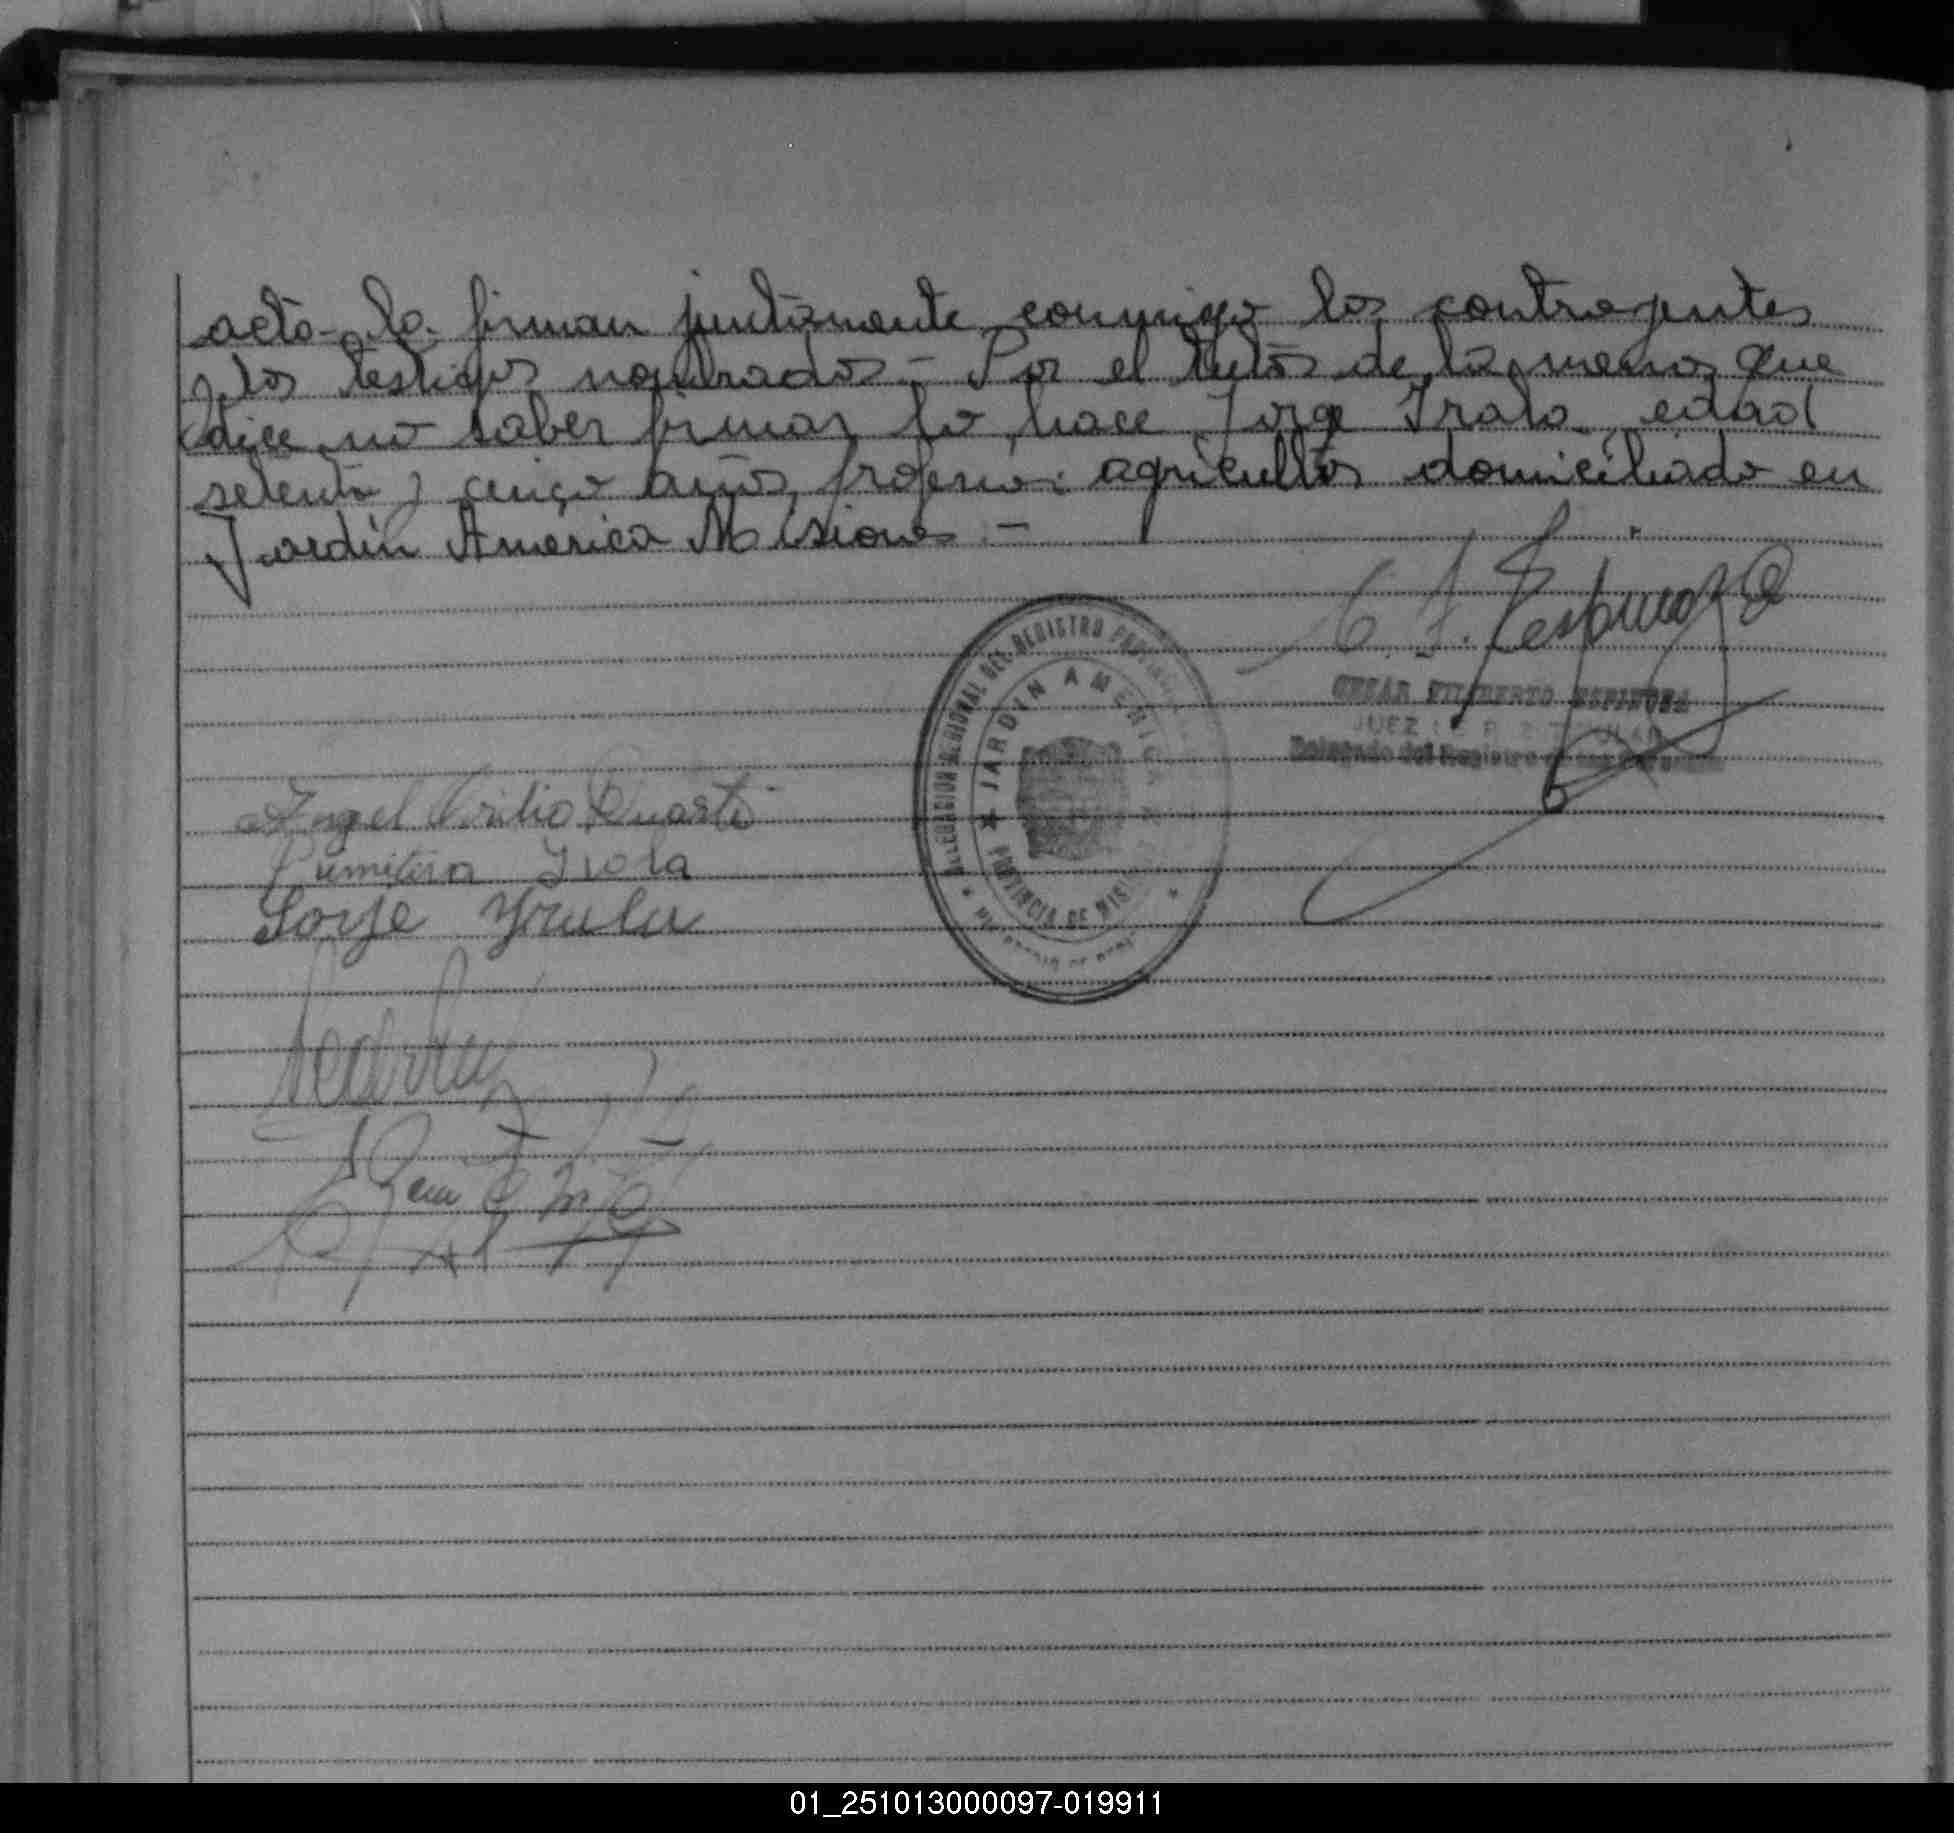 acto- la firman juntamente conmigo los contrayentes
y los testigos nombrados - Por el tutor de la menor que
dice no saber firmar lo hace Jorge Irala edad
setenta y cinco años, profesion: agricultor domiciliado en
Jardin America Misiones -
C. F. Espinoza
CESAR FILIBERTO ESPINOSA
JUEZ DE PAZ TITULAR
Delegado del Registro de las Personas
DELEGACION REGIONAL DEL REGISTRO PROVINCIAL
JARDIN AMERICA
PROVINCIA DE MISIONES
Angel Virilio Duarte
Irola
Sorje Yrala
01_251013000097-019911